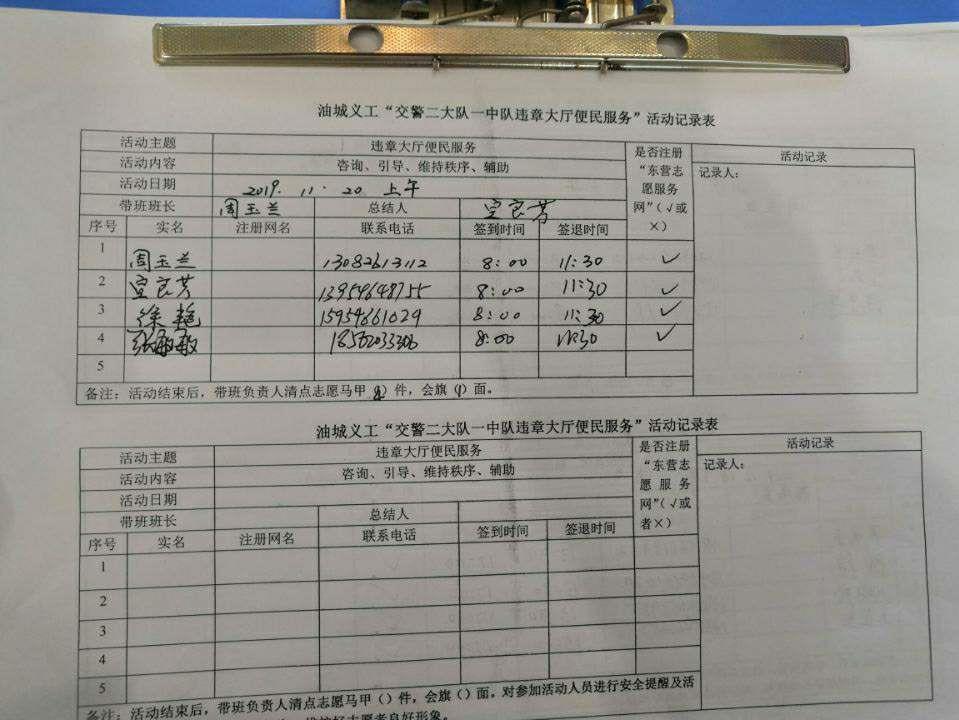 油城义工“交警二大队一中队违章大厅便民服务”活动记录表
活动主题 违章大厅便民服务 是否注册“东营志愿服务网”(√或×) 活动记录
活动内容 咨询、引导、维持秩序、辅助 记录人:
活动日期 2019.11.20 上午
带班班长 周玉兰 总结人
序号 实名 注册网名 联系电话 签到时间 签退时间
1 周玉兰 13082613112 8:00 11:30 ✓
2 13954648755 8:00 11:30 ✓
3 徐艳 15954661029 8:00 11:30 ✓
4 张敏敏 18562033306 8:00 11:30 ✓
5
备注:活动结束后,带班负责人清点志愿马甲()件,会旗(1)面。
油城义工“交警二大队一中队违章大厅便民服务”活动记录表
活动主题 违章大厅便民服务 是否注册“东营志愿服务网”(√或者×) 活动记录
活动内容 咨询、引导、维持秩序、辅助 记录人:
活动日期
带班班长 总结人
序号 实名 注册网名 联系电话 签到时间 签退时间
1
2
3
4
5
备注:活动结束后,带班负责人清点志愿马甲()件,会旗()面。对参加活动人员进行安全提醒及活
志愿者良好形象。